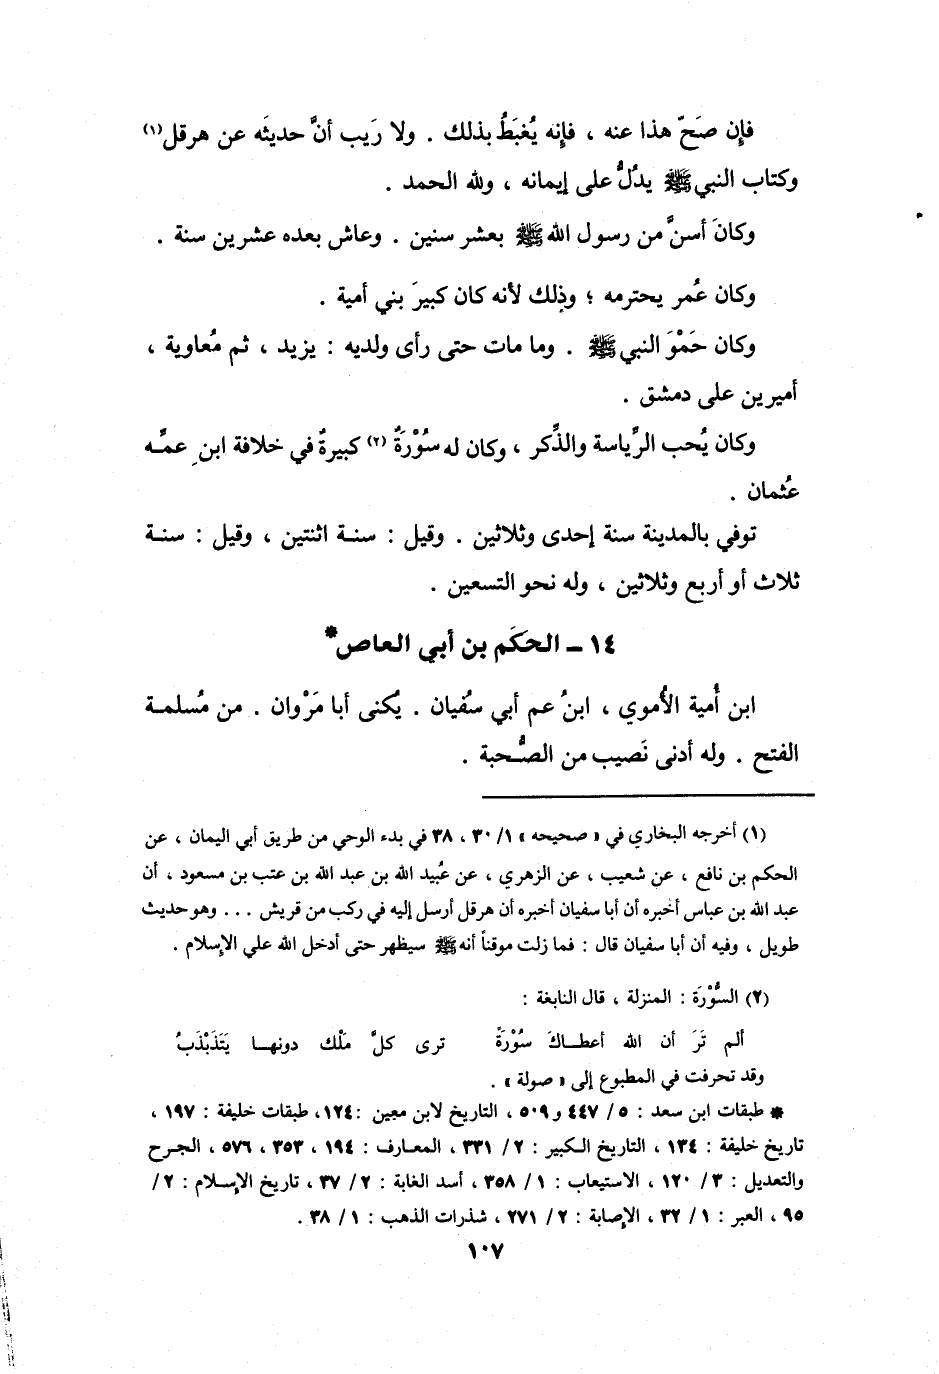 فإِن صَحّ هذا عنه ، فإِنه يُغبَطُ بذلك . ولا رَيب أنَّ حديثَه عن هرقل(١)
وكتاب النبي ﷺ يدُلُّ على إيمانه ، ولله الحمد .
وكانَ أسنَّ من رسول الله ﷺ بعشر سنين . وعاش بعده عشرين سنة .
وكان عُمر يحترمه ؛ وذلك لأنه كان كبيرَ بني أمية .
وكان حَمْوَ النبي ﷺ . وما مات حتى رأى ولديه : يزيد ، ثم مُعاوية ،
أميرين على دمشق .
وكان يُحب الرِّياسة والذِّكر ، وكان له سُوْرَةٌ (٢) كبيرةٌ في خلافة ابن عمِّه
عُثمان .
توفي بالمدينة سنة إحدى وثلاثين . وقيل : سنة اثنتين ، وقيل : سنة
ثلاث أو أربع وثلاثين ، وله نحو التسعين .
١٤ - الحكَم بن أبي العاص*
ابن أُمية الأُموي ، ابنُ عم أبي سُفيان . يُكنى أبا مَرْوان . من مُسلمة
الفتح . وله أدنى نَصيب من الصُّحبة .
(١) أخرجه البخاري في « صحيحه » ١/ ٣٠ ، ٣٨ في بدء الوحي من طريق أبي اليمان ، عن
الحكم بن نافع ، عن شعيب ، عن الزهري ، عن عُبيد الله بن عبد الله بن عتب بن مسعود ، أن
عبد الله بن عباس أخبره أن أبا سفيان أخبره أن هرقل أرسل إليه في ركب من قريش ... وهو حديث
طويل ، وفيه أن أبا سفيان قال : فما زلت موقناً أنه ﷺ سيظهر حتى أدخل الله علي الإِسلام .
(٢) السُّوْرَة : المنزلة ، قال النابغة :
ألم تَرَ أن الله أعطاكَ سُوْرَةً ترى كلَّ مَلْك دونها يَتَذَبْذَبُ
وقد تحرفت في المطبوع إلى « صولة » .
* طبقات ابن سعد : ٥/ ٤٤٧ و ٥٠٩ ، التاريخ لابن معين :١٢٤، طبقات خليفة : ١٩٧ ،
تاريخ خليفة : ١٣٤ ، التاريخ الكبير : ٢/ ٣٣١ ، المعارف : ١٩٤ ، ٣٥٣ ، ٥٧٦ ، الجرح
والتعديل : ٣/ ١٢٠ ، الاستيعاب : ١/ ٣٥٨ ، أسد الغابة : ٢/ ٣٧ ، تاريخ الإسلام : ٢/
٩٥ ، العبر : ١/ ٣٢ ، الإصابة : ٢/ ٢٧١ ، شذرات الذهب : ١/ ٣٨ .
١٠٧